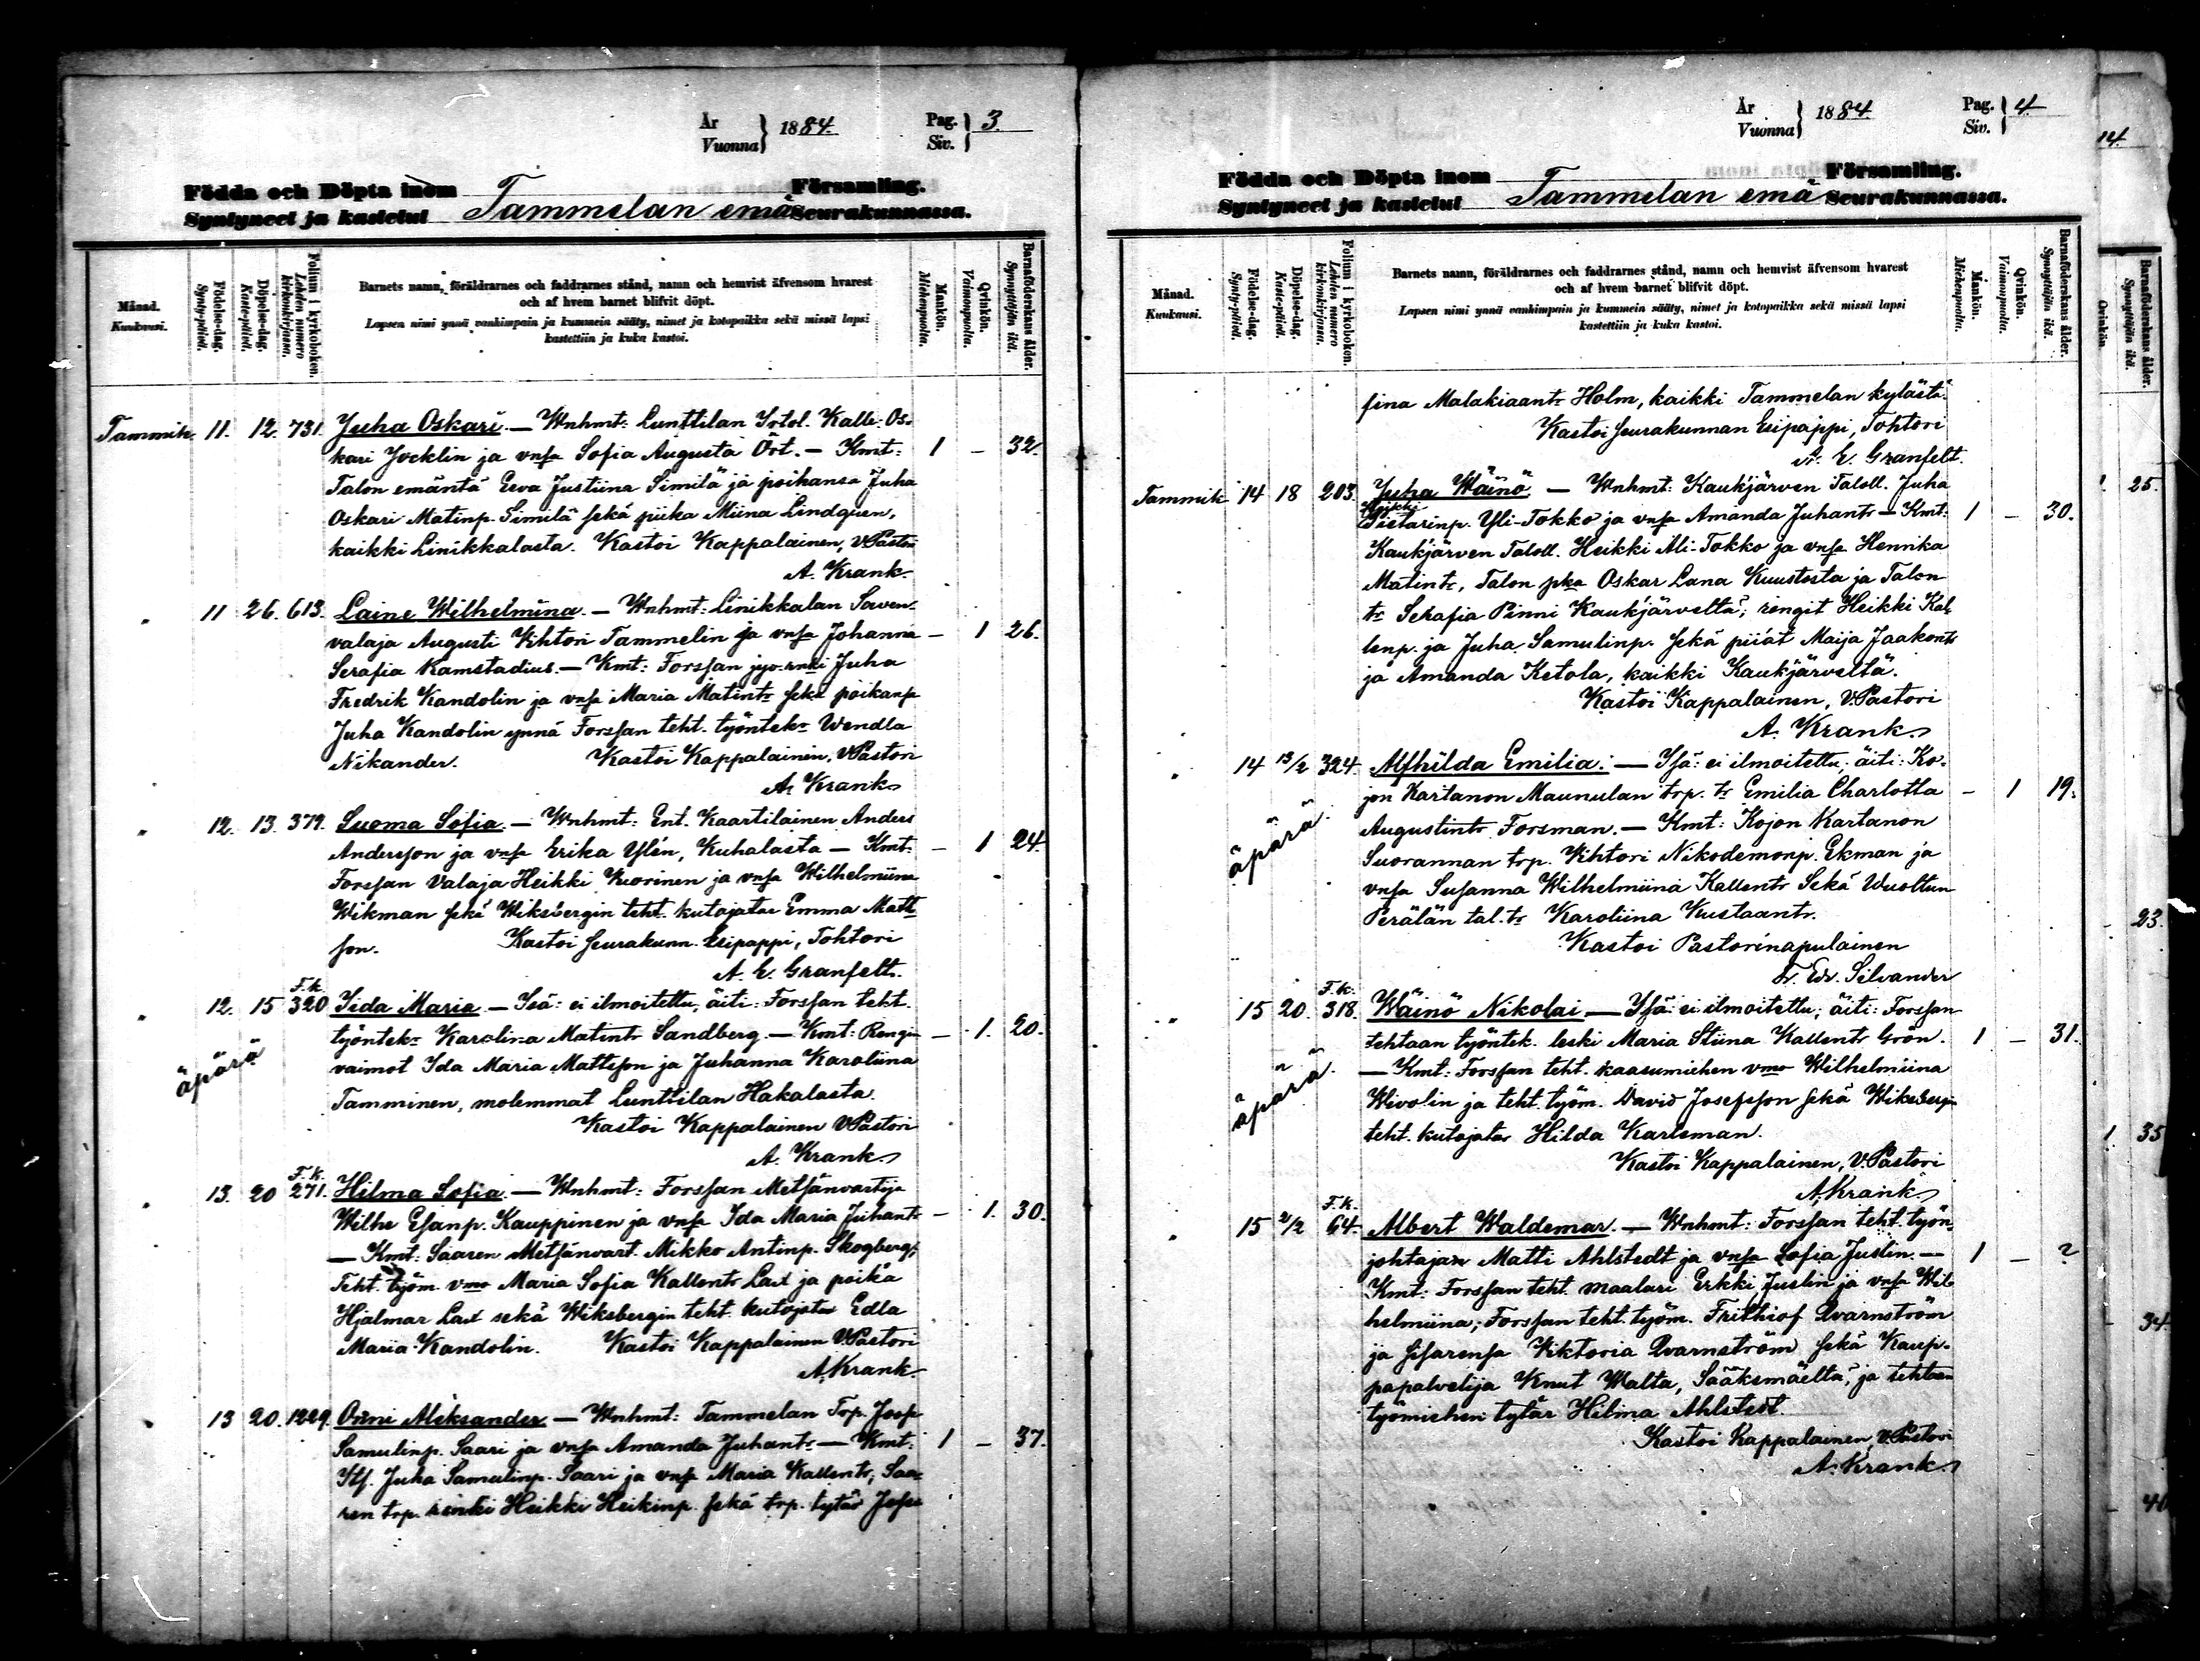 År
Vuonna } 1884.
Pag.
Siv. } 3.
Födda och Döpta inom
Syntyneet ja kastetut Tammelan emä Församling.
Seurakunnassa.
Månad.
Kuukausi.
Födelse-dag.
Synty-päivä.
Döpelse-dag.
Kaste-päivä.
Folium i kyrkoboken.
Lehden numero kirkonkirjassa.
Barnets namn, föräldrarnes och faddrarnes stånd, namn och hemvist äfvensom hvarest
och af hvem barnet blifvit döpt.
Lapsen nimi ynnä vanhimpain ja kummein sääty, nimet ja kotopaikka sekä missä lapsi
kastettiin ja kuka kastoi.
Mankön.
Miehenpuolia.
Qvinkön.
Vaimonpuolia.
Barnaföderskans ålder.
Synnyttäjän ikä.
Tammik. 11. 12. 731. Juha Oskari. — Wnhmt: Lunttilan Kalle Os-
kari Jocklin ja vnsa Sofia Augusta Ört. — Kmt: 1 — 32.
Talon emäntä Eeva Justiina Similä ja poikansa Juha
Oskari Matinp. Similä sekä piika Miina Lindqven,
kaikki Linikkalasta. Kastoi Kappalainen, V.Pastori
A. Krank.
" 11 26. 613. Laine Wilhelmina. — Wnhmt: Linikkalan Saven-
valaja Augusti Vihtori Tammelin ja vnsa Johanna — 1 26.
Serafia Ramstadius. — Kmt: Forssan Juha
Fredrik Kandolin ja vnsa Maria Matintr sekä poikansa
Juha Kandolin ynnä Forssan teht. työntek. Wendla
Nikander. Kastoi Kappalainen, V.Pastori
A. Krank.
" 12. 13. 379. Suoma Sofia. — Wnhmt: Ent. Kaartilainen Anders
Andersson ja vnsa Erika Ylén, Kuhalasta — Kmt: — 1 24.
Forssan Valaja Heikki Vuorinen ja vnsa Wilhelmiina
Wikman sekä Wiksbergin teht. kutojatar Emma Matts-
son. Kastoi Seurakunn. Esipappi, Tohtori
A. E. Granfelt.
F.k.
" 12. 15 320 Iida Maria — Isä: ei ilmoitettu, äiti: Forssan teht.
työntek. Karolina Matintr Sandberg. — Kmt: Rengin — 1. 20.
äpärä
vaimot Ida Maria Mattsson ja Juhanna Karoliina
Tamminen, molemmat Lunttilan Hakalasta.
Kastoi Kappalainen V.Pastori
A. Krank.
F.k.
" 13. 20 271. Hilma Sofia — Wnhmt: Forssan Metsänvartija
Wilhe Esanp. Kauppinen ja vnsa Ida Maria Juhantr — 1. 30.
— Kmt: Saaren Metsänvart. Mikko Antinp. Skogberg;
Teht. työm. vmo Maria Sofia Kallentr Lax ja poika
Hjalmar Lax sekä Wiksbergin teht. kutojatar Edla
Maria Kandolin. Kastoi Kappalainen V.Pastori
A. Krank.
" 13 20. 1229. Onni Aleksander — Wnhmt: Tammelan Trp. Josep
Samulinp. Saari ja vnsa Amanda Juhantr — Kmt: 1 — 37.
Its. Juha Samulinp. Saari ja vnsa Maria Kallentr, Saa-
ren trp. renki Heikki Heikinp. sekä trp. tytär Jose-
År
Vuonna } 1884
Pag.
Siv. } 4.
Födda och Döpta inom
Syntyneet ja kastetut Tammelan emä Församling.
Seurakunnassa.
Månad.
Kuukausi.
Födelse-dag.
Synty-päivä.
Döpelse-dag.
Kaste-päivä.
Folium i kyrkoboken.
Lehden numero kirkonkirjassa.
Barnets namn, föräldrarnes och faddrarnes stånd, namn och hemvist äfvensom hvarest
och af hvem barnet blifvit döpt.
Lapsen nimi ynnä vanhimpain ja kummein sääty, nimet ja kotopaikka sekä missä lapsi
kastettiin ja kuka kastoi.
Mankön.
Miehenpuolia.
Qvinkön.
Vaimonpuolia.
Barnaföderskans ålder.
Synnyttäjän ikä.
fina Malakiaantr Holm, kaikki Tammelan kylästä.
Kastoi Seurakunnan Esipappi, Tohtori
A. E. Granfelt.
Tammik 14 18 203. Juha Wäinö — Wnhmt: Kaukjärven Taloll. Juha
Heikki
Yli-Tokko ja vnsa Amanda Juhantr — Kmt: 1 — 30.
Kaukjärven Taloll. Heikki Ali-Tokko ja vnsa Henrika
Matintr, Talon pka Oskar Lana Kuustosta ja Talon
tr Serafia Pinni Kaukjärveltä; rengit Heikki Kal-
lenp. ja Juha Samulinp. sekä piiat Maija Jaakontr
ja Amanda Ketola, kaikki Kaukjärveltä.
Kastoi Kappalainen, V.Pastori
A. Krank.
" 14 13/2 324. Alfhilda Emilia: — Isä: ei ilmoitettu; äiti: Ko-
jon Kartanon Maunulan trp. tr Emilia Charlotta — 1 19.
äpärä
Augustintr Forsman. — Kmt: Kojon Kartanon
Suorannan trp. Vihtori Nikodemonp. Ekman ja
vnsa Susanna Wilhelmiina Kallentr Sekä Wuoltun
Perälän tal. tr Karoliina Kustaantr.
Kastoi Pastorinapulainen
Fr. Edv. Silvander
F.k.
" 15 20. 318. Wäinö Nikolai — Isä: ei ilmoitettu; äiti: Forssan
tehtaan työntek. leski Maria Stiina Kallentr Grön. 1 — 31.
äpärä
— Kmt: Forssan teht. kaasumiehen vmo Wilhelmiina
Wivolin ja teht. työm. David Josefsson sekä Wiksbergin
teht. kutojatar Hilda Karlsman.
Kastoi Kappalainen, V.Pastori
A. Krank.
F.k.
" 15 2/2 64. Albert Waldemar. — Wnhmt: Forssan teht. työn-
johtajan Matti Ahlstedt ja vnsa Sofia Juslin. — 1 — ?
Kmt: Forssan teht. maalari Erkki Juslin ja vnsa Wil-
helmiina; Forssan teht. työm. Frithiof Qvarnström
ja sisarensa Viktoria Qvarnström sekä Kaup-
papalvelija Knut Walta, Sääksmäeltä, ja tehtaan
työmiehen tytär Hilma Ahlstedt.
Kastoi Kappalainen, V.Pastori
A. Krank.
14.
Qvinkön.
Barnaföderskans ålder.
Synnyttäjän ikä.
25.
23.
1. 35
34.